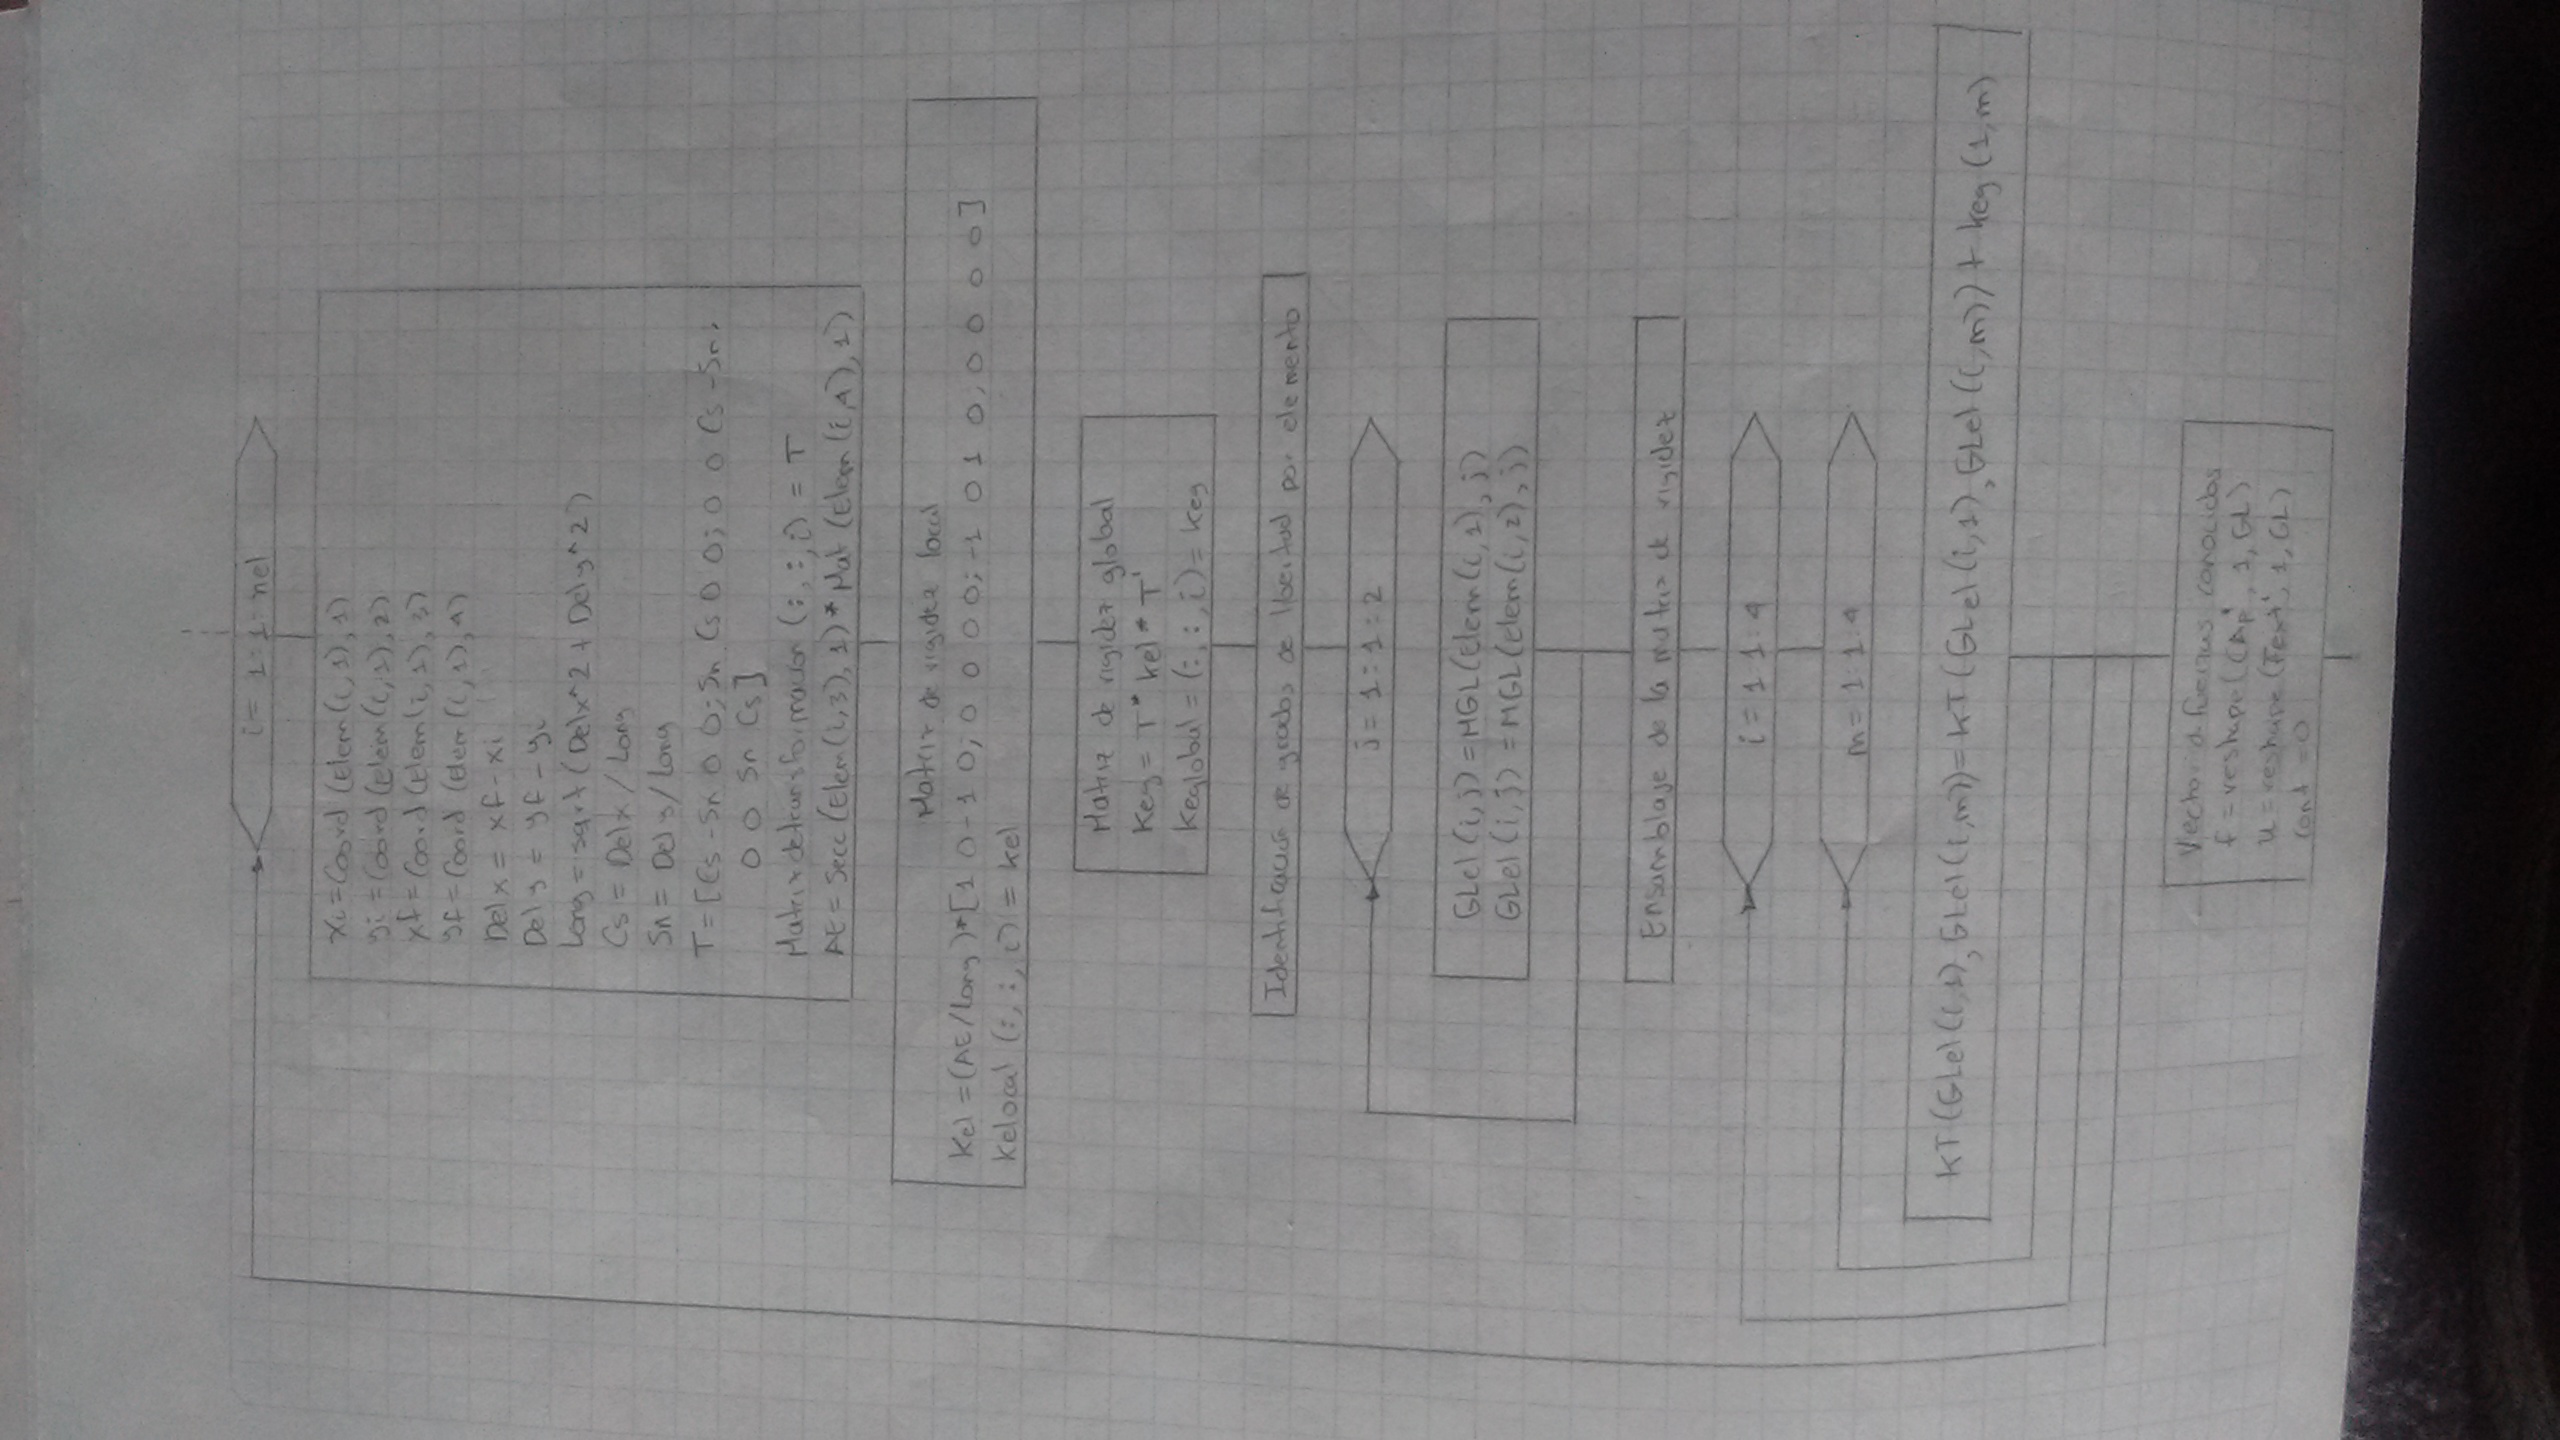 i = 1:1:nel
xi = Coord (Elem (i,1),1)
yi = Coord (Elem (i,1),2)
xf = Coord (Elem (i,1),3)
yf = Coord (Elem (i,1),4)
Delx = xf - xi
Dely = yf - yi
Long = sqrt (Delx^2 + Dely^2)
Cs = Delx / Long
Sn = Dely / Long
T = [Cs -Sn 0 0; Sn Cs 0 0; 0 0 Cs -Sn;
0 0 Sn Cs]
Matrix de transformacion (:,:,i) = T
AE = Secc (Elem (i,3),1) * Mat (Elem (i,4),1)
Matriz de rigidez local
Kel = (AE/Long)*[1 0 -1 0; 0 0 0 0; -1 0 1 0; 0 0 0 0]
Kelocal (:,:,i) = kel
Matriz de rigidez global
Keg = T * kel * T'
Keglobal = (:,:,i) = keg
Identificación de grados de libertad por elemento
j = 1:1:2
GLel (i,j) = MGL (elem (i,1),j)
GLel (i,j) = MGL (elem (i,2),j)
Ensamblaje de la matriz de rigidez
i = 1:1:4
m = 1:1:4
KT (GLel (i,1), GLel (i,m)) = KT (GLel (i,1), GLel (i,m)) + keg (1,m)
Vector de fuerzas conocidas
f = reshape (CAp', 1, GL)
u = reshape (Fext', 1, GL)
Cont = 0